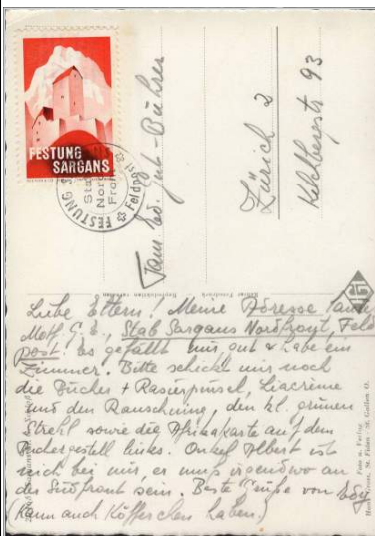 FESTUNG
SARGANS
Feldpost
FESTUNG S
Sta
Nor
Fron
Fam. Ed. Gut-Bührer
Zürich 2
Kilchbergstr 93
Liebe Eltern! Meine Adresse lautet,
Stab Sargans Nordfront, Feld
post. Es gefällt mir gut & habe ein
Zimmer. Bitte schickt mir noch
die Bücher + Rasierpinsel,
und den den kl. grünen
Strehl sowie die Afrikakarte auf dem
Büchergestell links. Onkel Albert ist
nich bei mir, er muss irgendwo an
der Südfront sein. Beste Grüße von Edy
(Kann auch Köfferchen haben.)
Foto u. Verlag
Hans Gross, St. Fiden - St. Gallen O.